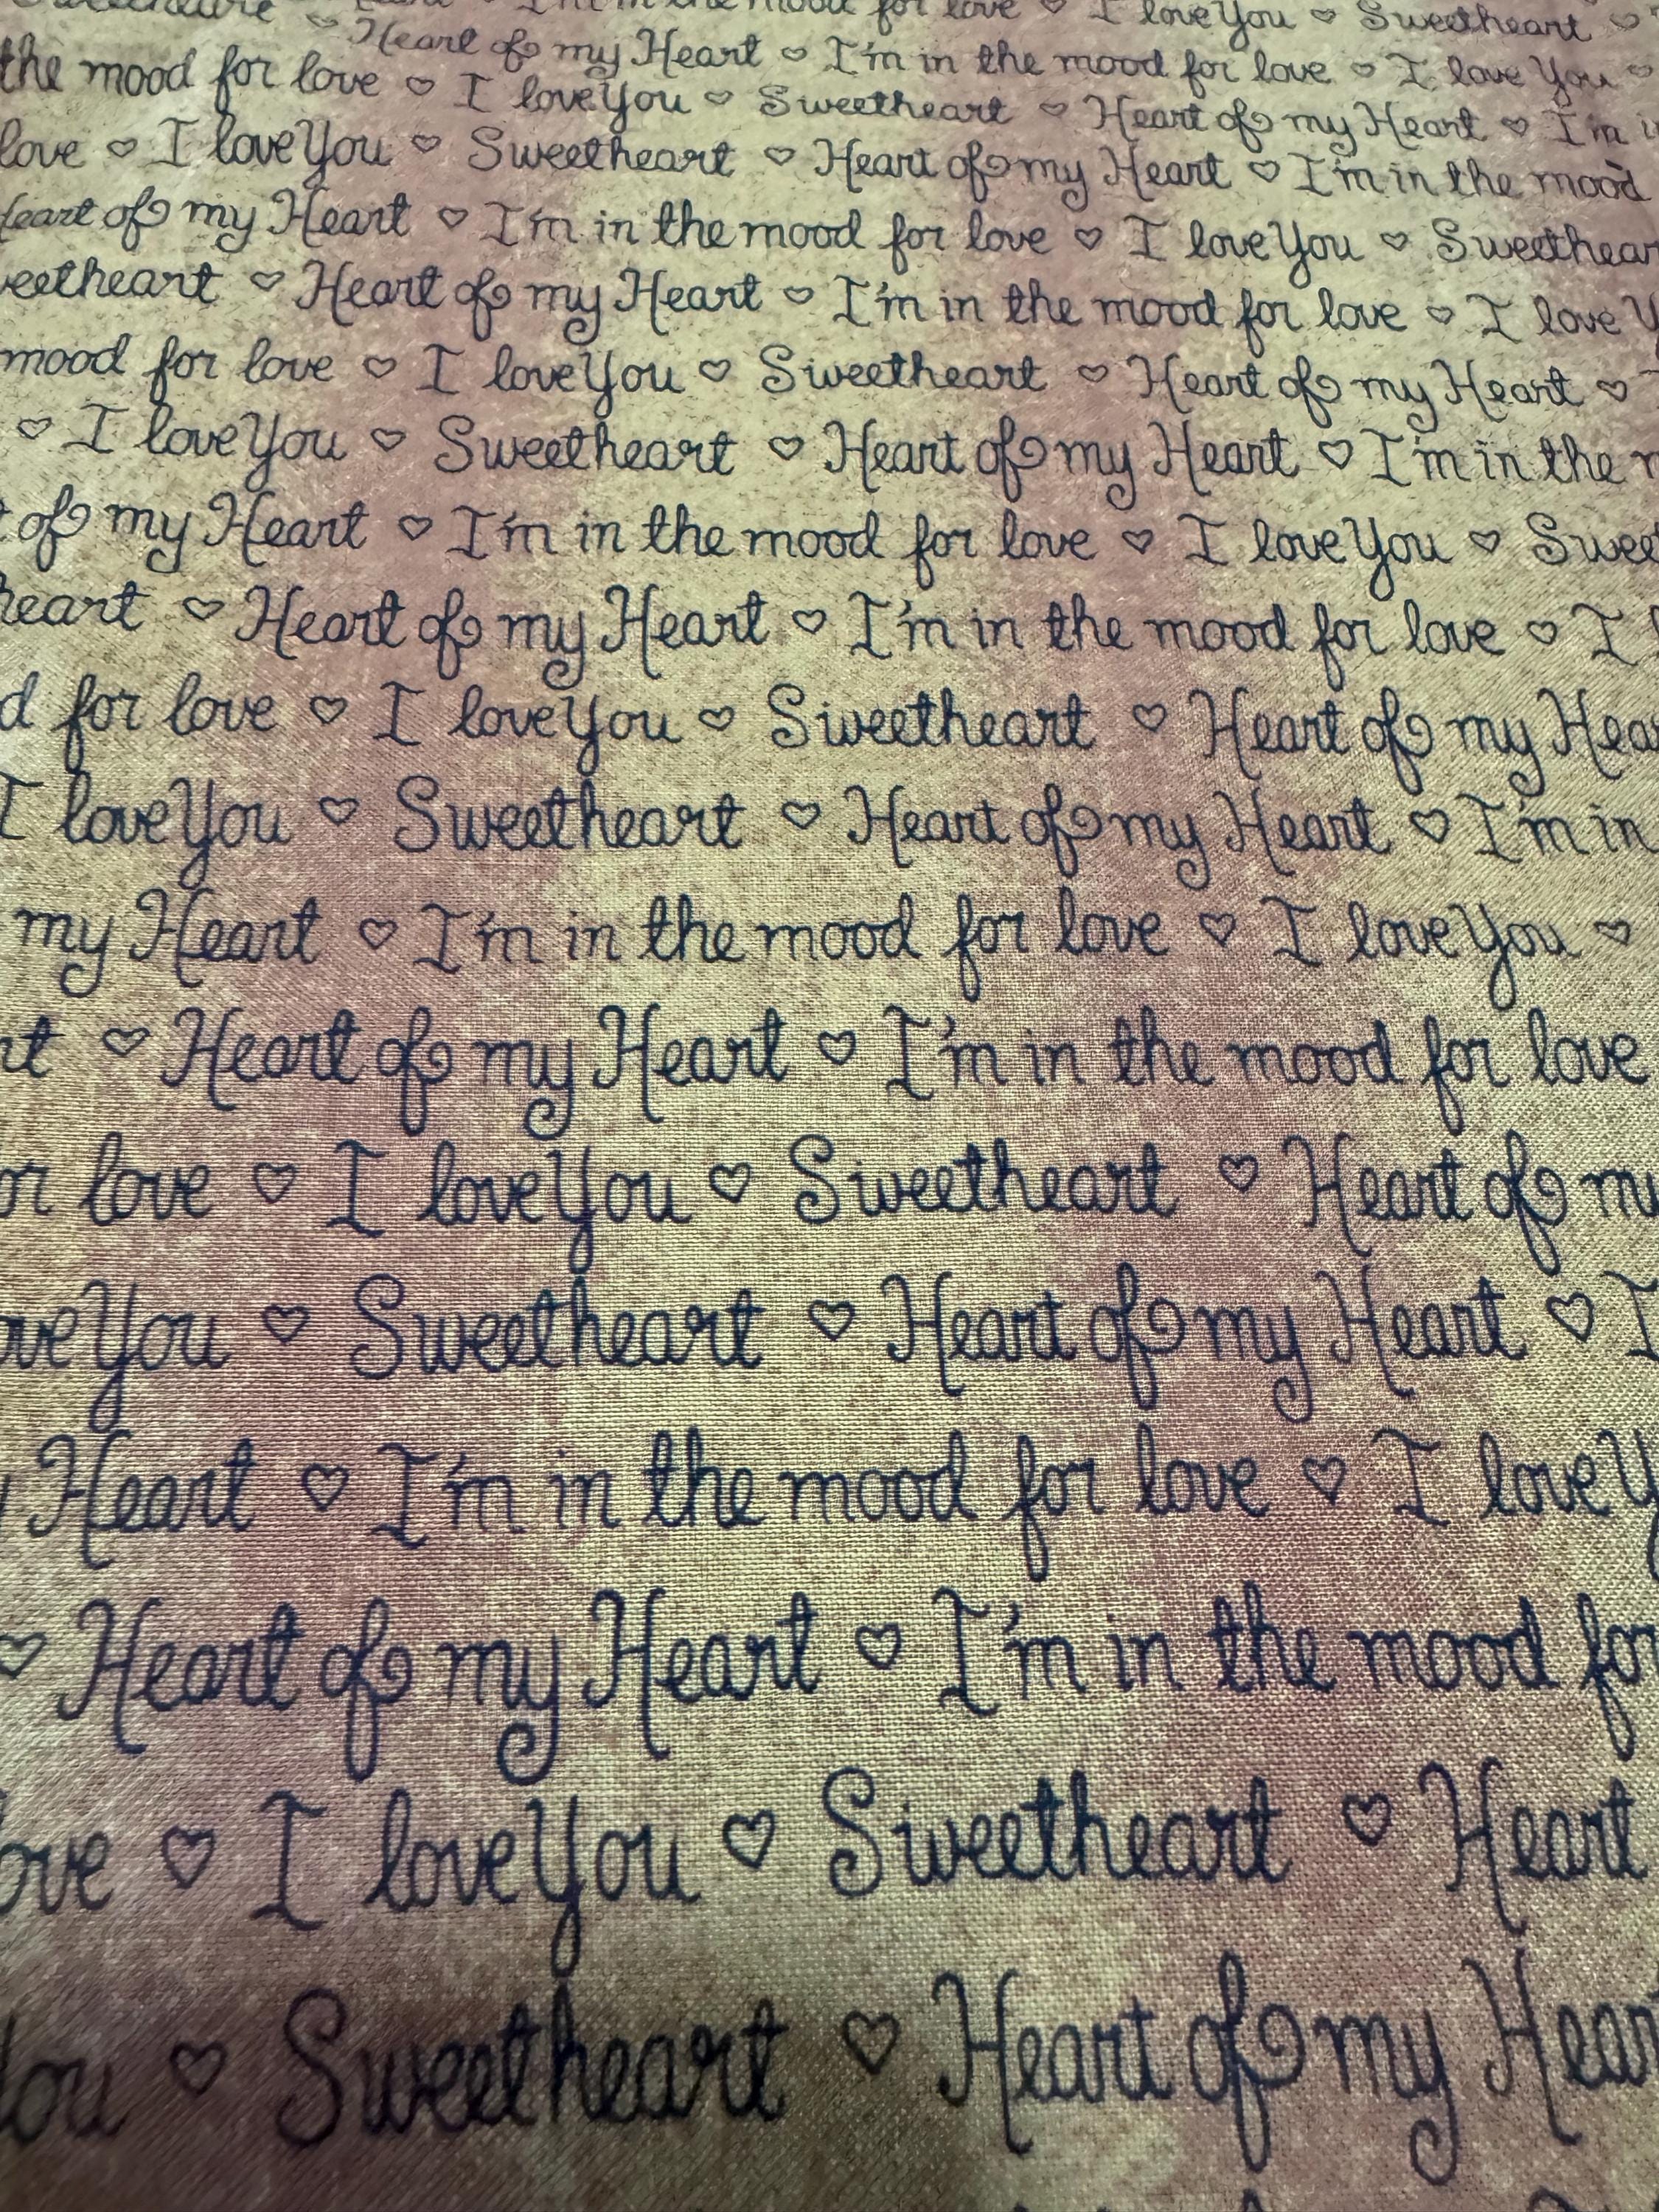 for love ♡ I love You ♡ Sweetheart ♡
Heart of my Heart ♡ I'm in the mood for love ♡ I love You ♡
the mood for love ♡ I love You ♡ Sweetheart ♡ Heart of my Heart ♡ I'm
love ♡ I love You ♡ Sweetheart ♡ Heart of my Heart ♡ I'm in the mood
Heart of my Heart ♡ I'm in the mood for love ♡ I love You ♡ Sweethear
weetheart ♡ Heart of my Heart ♡ I'm in the mood for love ♡ I love Y
mood for love ♡ I love You ♡ Sweetheart ♡ Heart of my Heart ♡
♡ I love You ♡ Sweetheart ♡ Heart of my Heart ♡ I'm in the m
t of my Heart ♡ I'm in the mood for love ♡ I love You ♡ Sweet
heart ♡ Heart of my Heart ♡ I'm in the mood for love ♡ I l
d for love ♡ I love You ♡ Sweetheart ♡ Heart of my Hea
I love You ♡ Sweetheart ♡ Heart of my Heart ♡ I'm in
my Heart ♡ I'm in the mood for love ♡ I love You ♡
rt ♡ Heart of my Heart ♡ I'm in the mood for love
or love ♡ I love You ♡ Sweetheart ♡ Heart of my
ove You ♡ Sweetheart ♡ Heart of my Heart ♡ I
y Heart ♡ I'm in the mood for love ♡ I love Y
♡ Heart of my Heart ♡ I'm in the mood for
love ♡ I love You ♡ Sweetheart ♡ Heart
You ♡ Sweetheart ♡ Heart of my Heart